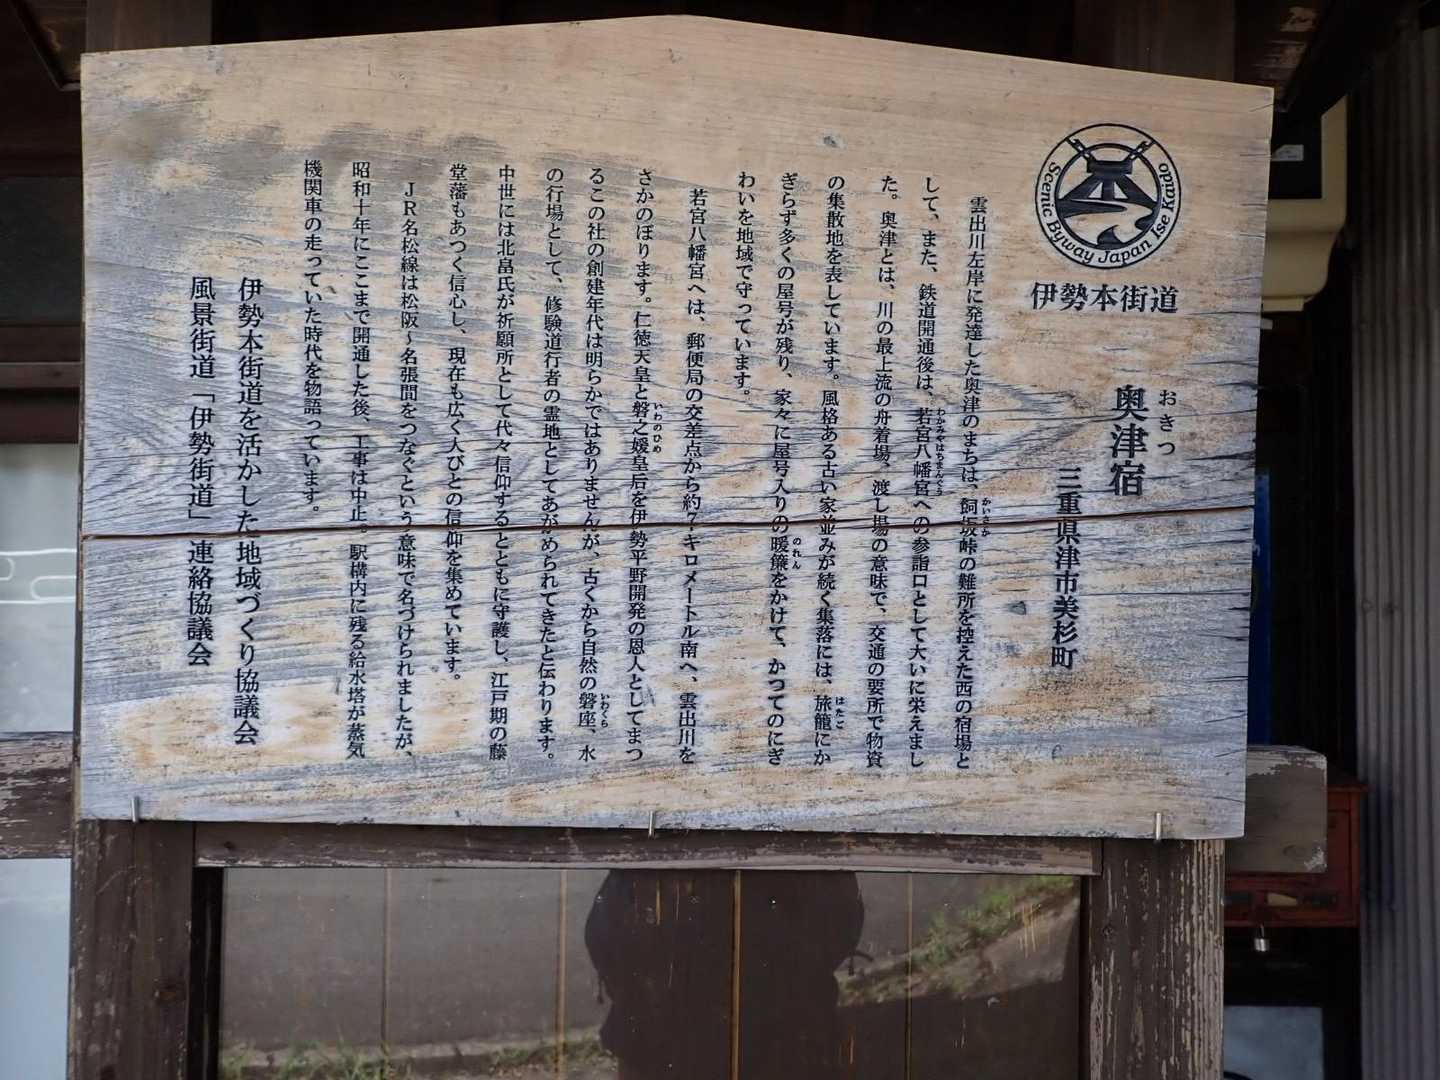 Scenic Byway Japan Ise Kaido
伊勢本街道
おきつ
奥津宿
三重県津市美杉町
雲出川左岸に発達した奥津のまちは、飼坂峠の難所を控えた西の宿場と
かいさか
して、また、鉄道開通後は、若宮八幡宮への参詣口として大いに栄えまし
わかみやはちまんぐう
た。奥津とは、川の最上流の舟着場、渡し場の意味で、交通の要所で物資
の集散地を表しています。風格ある古い家並みが続く集落には、旅籠にか
はたご
ぎらず多くの屋号が残り、家々に屋号入りの暖簾をかけて、かつてのにぎ
のれん
わいを地域で守っています。
若宮八幡宮へは、郵便局の交差点から約7キロメートル南へ、雲出川を
さかのぼります。仁徳天皇と磐之媛皇后を伊勢平野開発の恩人としてまつ
いわのひめ
るこの社の創建年代は明らかではありませんが、古くから自然の磐座、水
いわくら
の行場として、修験道行者の霊地としてあがめられてきたと伝わります。
中世には北畠氏が祈願所として代々信仰するとともに守護し、江戸期の藤
堂藩もあつく信心し、現在も広く人びとの信仰を集めています。
JR名松線は松阪〜名張間をつなぐという意味で名づけられましたが、
昭和十年にここまで開通した後、工事は中止。駅構内に残る給水塔が蒸気
機関車の走っていた時代を物語っています。
伊勢本街道を活かした地域づくり協議会
風景街道「伊勢街道」連絡協議会